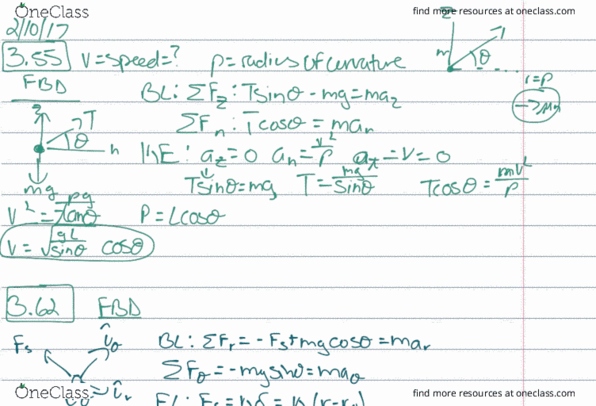 OneClass
find more resources at oneclass.com
2/10/17
3.55 v=speed=? ρ=radius of curvature
z
m
θ
r=ρ
FBD
BL: ΣF_z: Tsinθ - mg = ma_z
ΣF_n: Tcosθ = ma_n
z
T
θ
n
mg
KE: a_z=0 a_n=v²/ρ a_t=v̇=0
Tsinθ=mg T=mg/sinθ Tcosθ=mv²/ρ
v²=ρg/tanθ ρ=Lcosθ
v=√(gL/sinθ) cosθ
3.62 FBD
F_s
î_θ
î_r
BL: ΣF_r=-F_s+mgcosθ=ma_r
ΣF_θ=-mgsinθ=ma_θ
OneClass
find more resources at oneclass.com